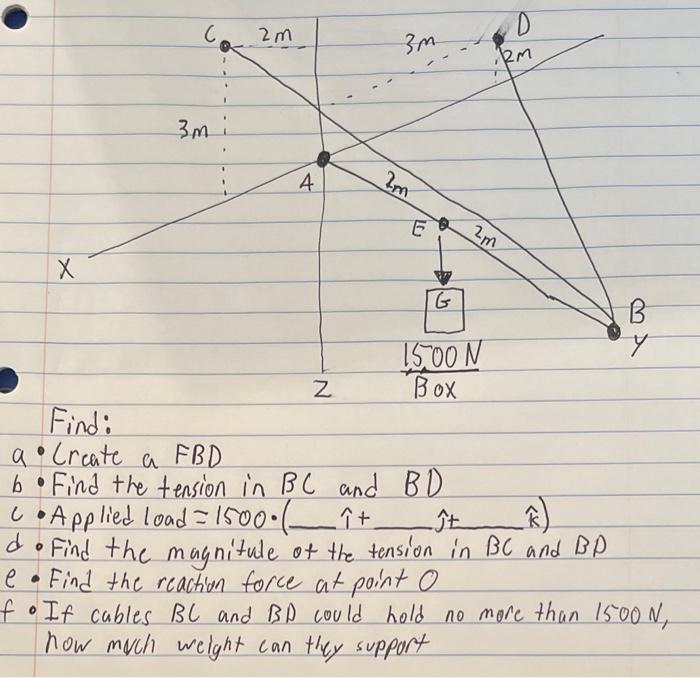 C 2m
3m
D
2m
3m
A
2m
E
2m
X
G
B
Y
1500 N
Box
Z
Find:
a • Create a FBD
b • Find the tension in BC and BD
c • Applied load = 1500 · (___ î + ___ ĵ + ___ k̂)
d • Find the magnitude of the tension in BC and BD
e • Find the reaction force at point O
f • If cables BC and BD could hold no more than 1500 N,
how much weight can they support